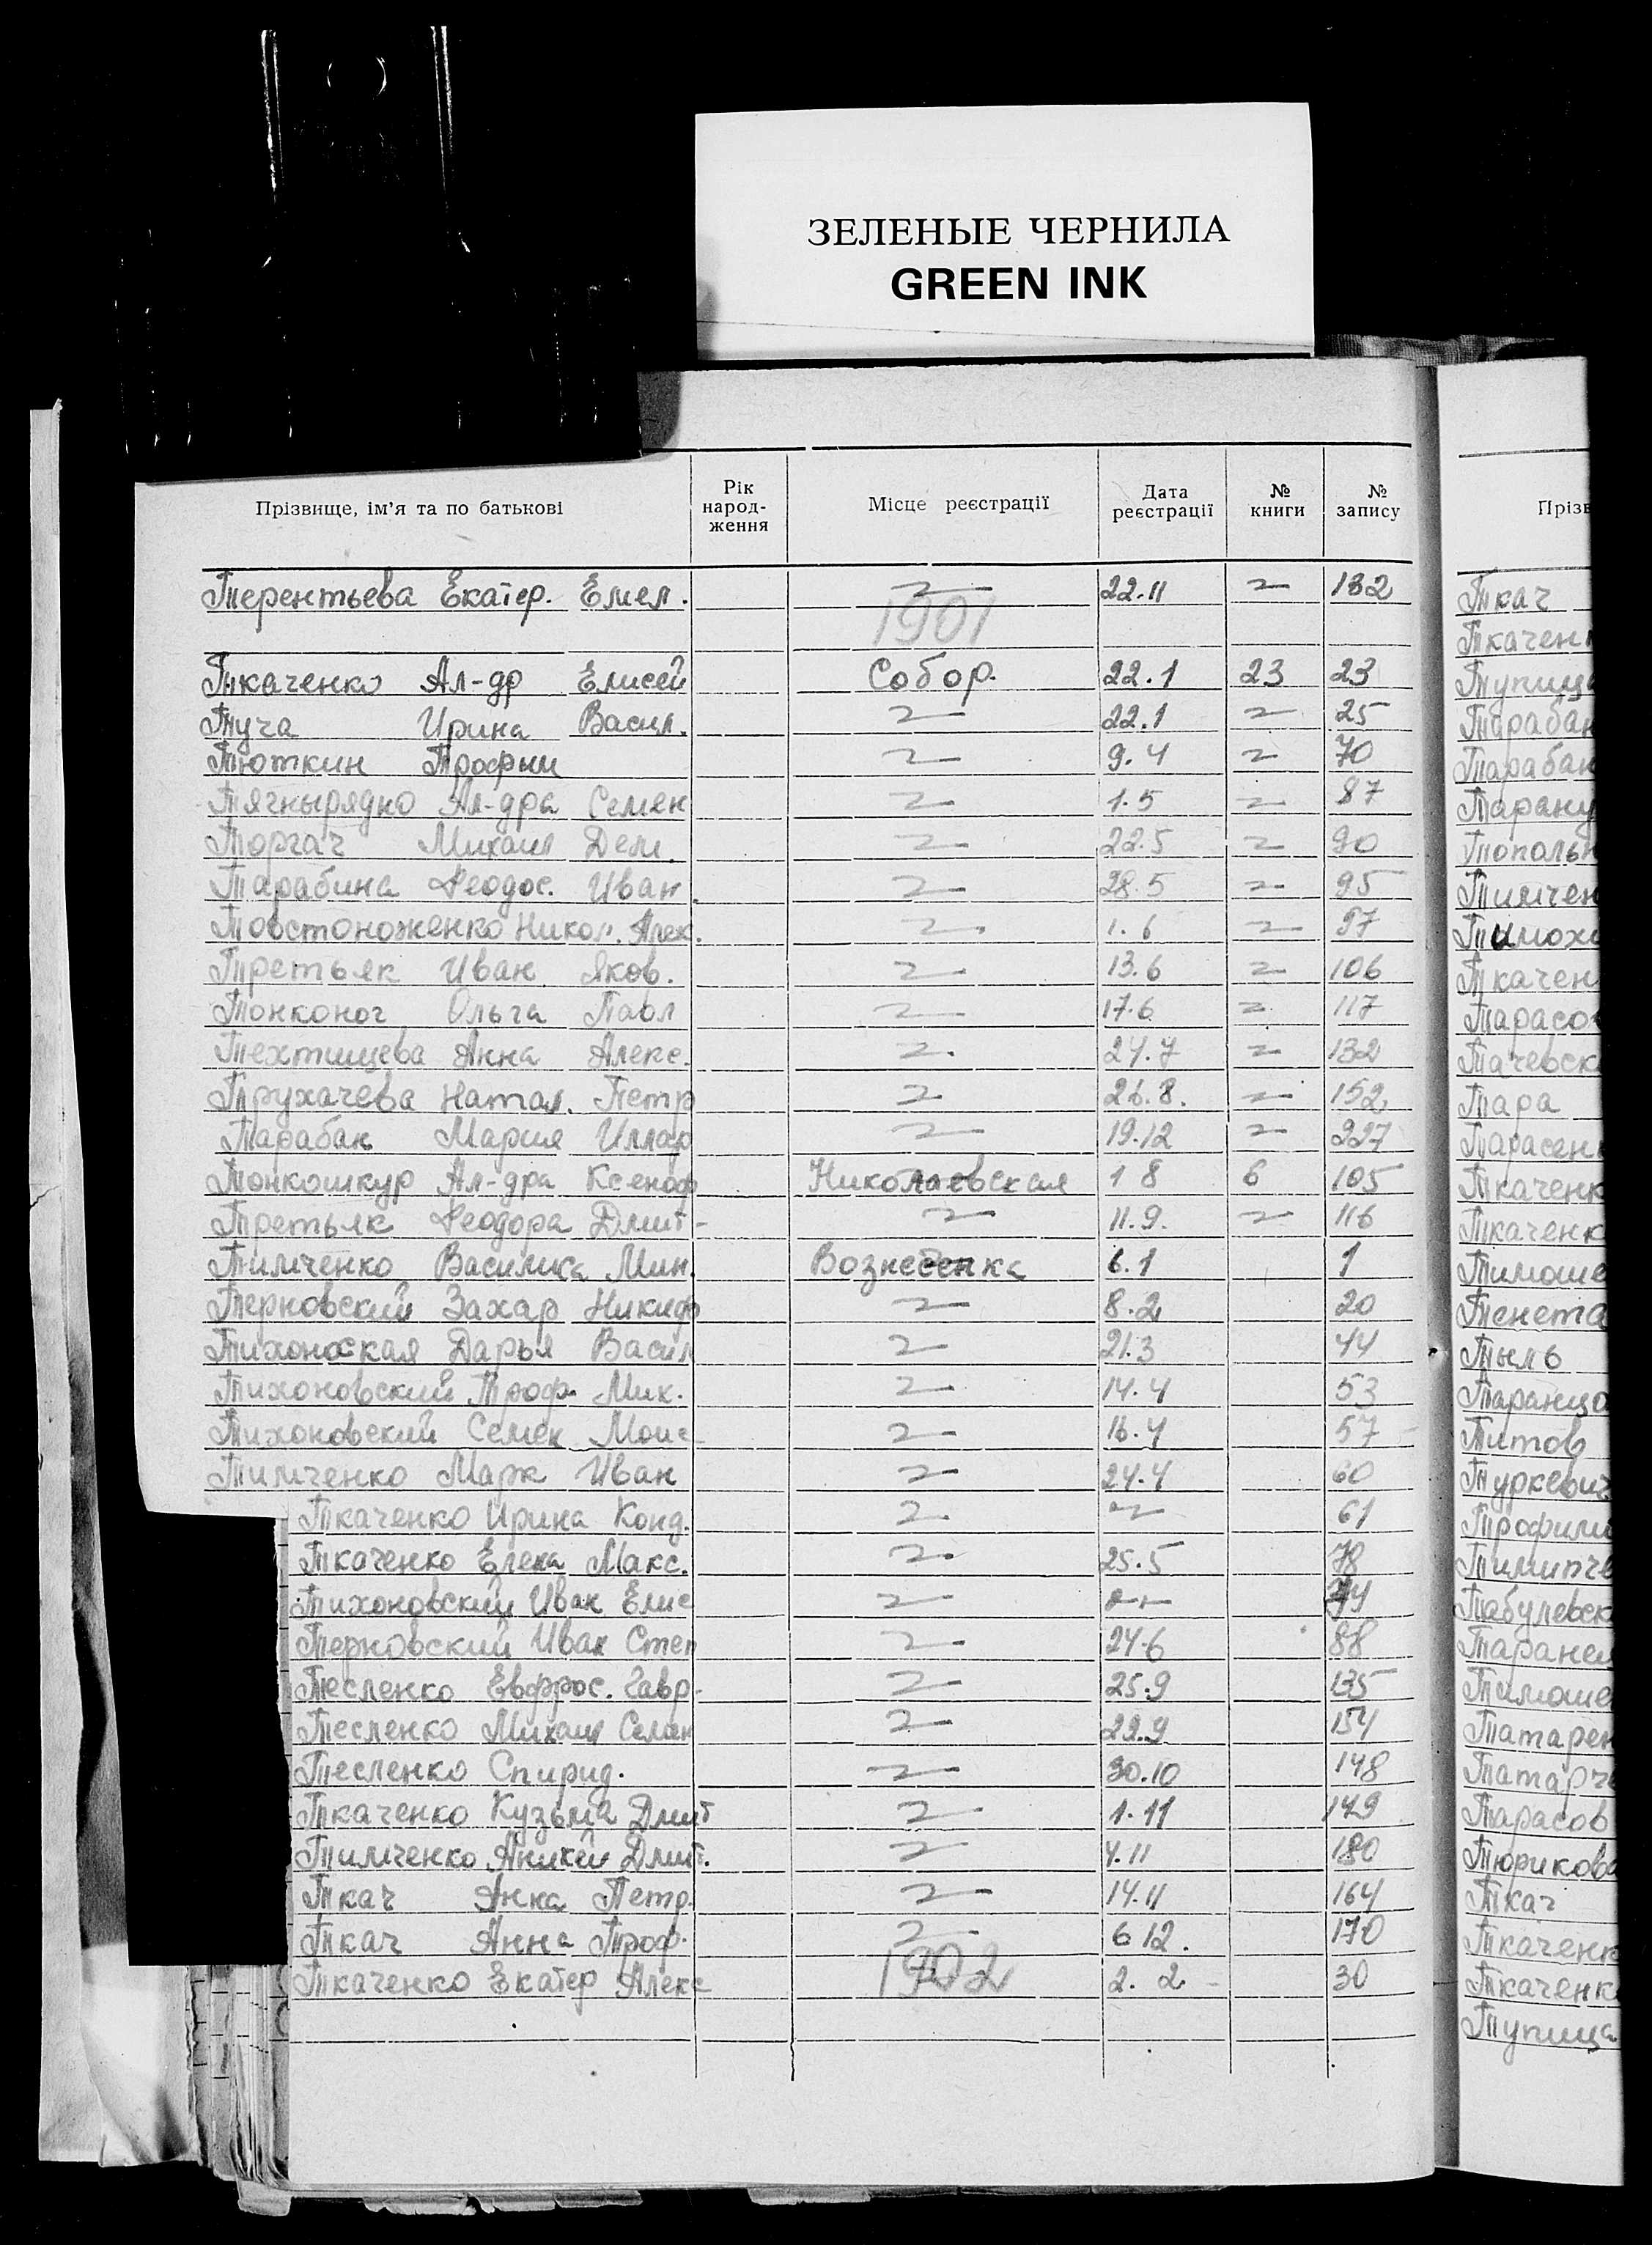 ЗЕЛЕНЫЕ ЧЕРНИЛА
GREEN INK
Прізвище, ім'я та по батькові Рік народ-ження Місце реєстрації Дата реєстрації № книги № запису Прізв
Терентьева Екатер. Емел. 22.11 132 Ткач
1901 Ткачен
Ткаченко Ал-др Елисей Собор. 22.1 23 23 Тупица
Туча Ирина Васил. 22.1 25 Тарабан
Тюткин Трофим 9.4 70 Тарабан
Тячнырядно Ал-дра Семен 1.5 87 Таран
Торгач Михаил Дем. 22.5 90 Тополь
Тарабина Феодос. Иван. 28.5 95 Тимчен
Товстоноженко Никол. Алек. 1.6 97 Тимох
Третьяк Иван Яков. 13.6 106 Ткачен
Тонконог Ольга Павл 17.6 117 Тарасо
Техтищева Анна Алекс. 24.7 132 Тачевск
Трухачева Натал. Петр 26.8. 152 Тара
Тарабан Мария Иллар 19.12 227 Тарасен
Тонкошкур Ал-дра Ксеноф Николаевская 1 8 6 105 Ткаченк
Третьяк Феодора Дмит- 11.9. 116 Ткаченк
Тимченко Василиса Мин. Вознесенка 6.1 1 Тимоше
Терновский Захар Никиф 8.2 20 Тенета
Тихоноская Дарья Васил 21.3 44 Тыль
Тихоновский Троф. Мих. 14.4 53 Таранцо
Тихоновский Семен Моис- 16.4 57 Титов
Тимченко Марк Иван 24.4 60 Туркевич
Ткаченко Ирина Конд. 61 Трофим
Ткаченко Елена Макс. 25.5 78
Тихоновский Иван Елис Табулевск
Терновский Иван Степ 24.6 88 Таран
Тесленко Евфрос. Гавр- 25.9 135 Тимоше
Тесленко Михаил Семен 29.9 154 Татарен
Тесленко Спирид. 30.10 148 Татарч
Ткаченко Кузьма Дмит 1.11 149 Тарасов
Тимченко Аникей Дмит. 4.11 Тюрикова
Ткач Анна Петр. 14.11 164 Ткач
Ткач Анна Троф. 6 12. 170 Ткаченк
Ткаченко Екатер Алекс 1902 2. 2 30 Ткаченк
Тупица